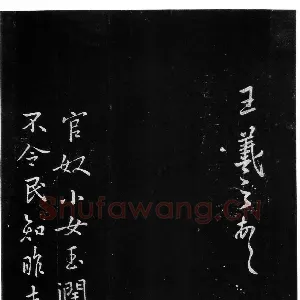 王羲之
官奴小女玉潤
不令民知昨
Shufawang.CN